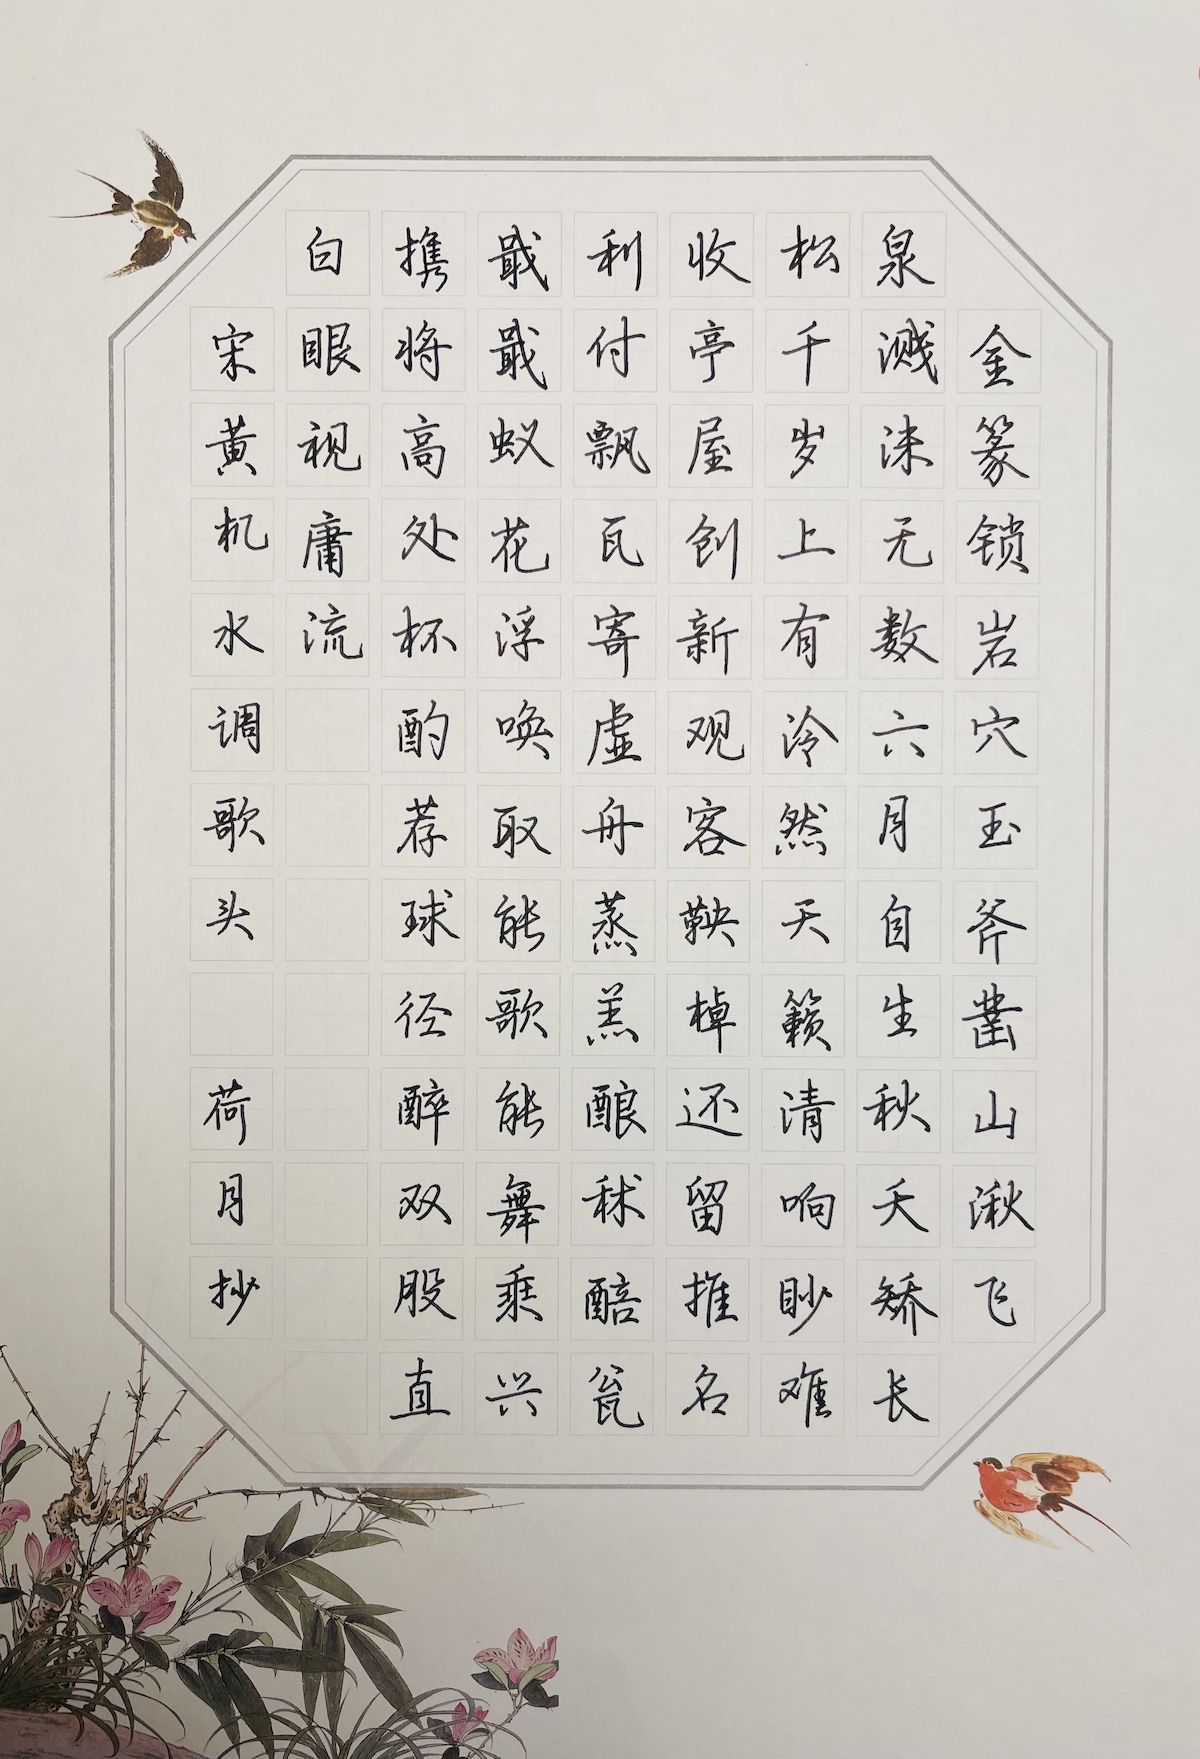 金篆锁岩穴玉斧凿山湫飞
泉溅沫无数六月自生秋夭矫长
松千岁上有泠然天籁清响眇难
收亭屋创新观客鞅棹还留推名
利付飘瓦寄虚舟蒸羔酿秫醅瓮
戢戢蚁花浮唤取能歌能舞乘兴
携将高处杯酌荐球径醉双股直
白眼视庸流
宋黄机水调歌头 荷月抄